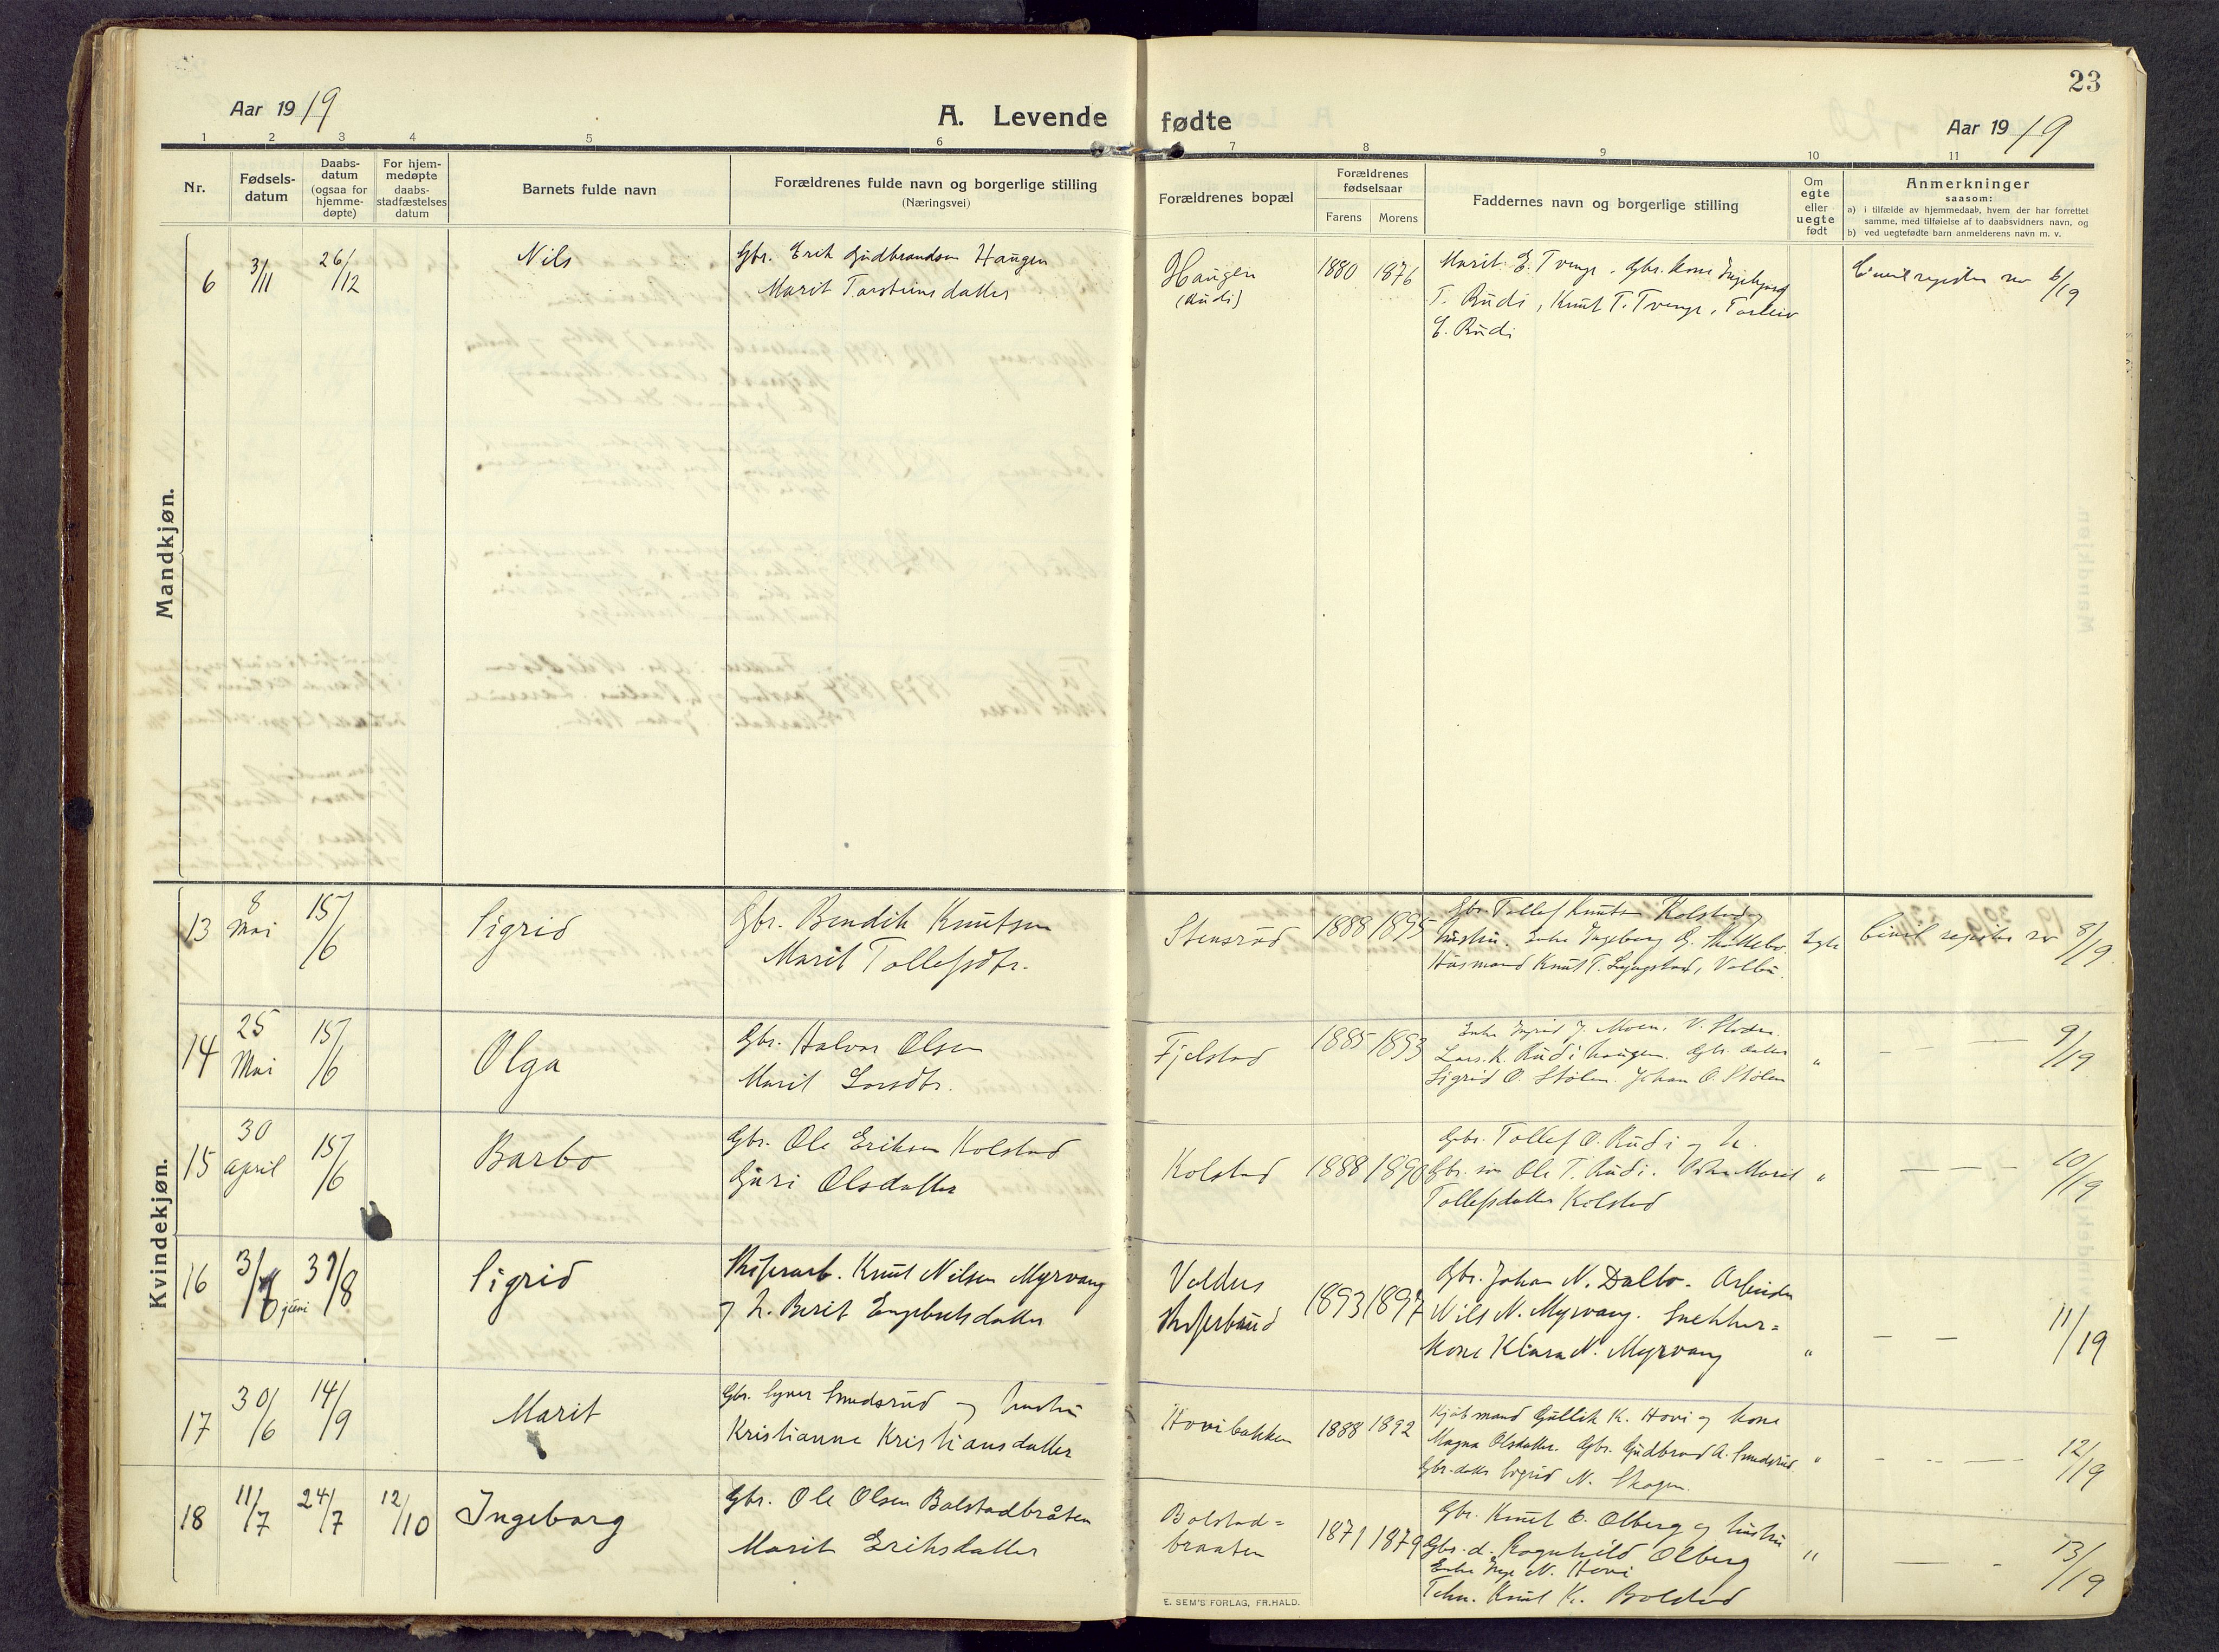 23
Aar 1919
A. Levende fødte
Aar 1919
1 2 3 4 5 6 7 8 9 10 11
Nr.
Fødsels-
datum
Daabs-
datum
(ogsaa for
hjemme-
døpte)
For hjem-
medøpte
daabs-
stadfæstelses
datum
Barnets fulde navn
Forældrenes fulde navn og borgerlige stilling
(Næringsvei)
Forældrenes bopæl
Forældrenes
fødselsaar
Farens Morens
Faddernes navn og borgerlige stilling
Om
egte
eller
uegte
født
Anmerkninger
saasom:
a) i tilfælde av hjemmedaab, hvem der har forrettet
samme, med tilføielse af to daabsvidners navn, og
b) ved uegtefødte barn anmelderens navn m. v.
Mandkjøn.
6 3/11 26/12 Nils
Gbr. Erik Gudbrandsen Haugen
Marit Torsteinsdatter
Haugen
(Rudi)
1880 1876
Marit E. Tvenge. Gbr. kone Ingebjørg
T. Rudi, Knut T. Tvenge, Torleiv
E. Rudi
Civilregister nr 6/19
Kvindekjøn.
13 8 Mai 15/6 Sigrid
Gbr. Bendik Knutsen
Marit Tollefsdtr.
Stensrud 1888 1895
Gbr. Tollef Knutsen Kolstad og
hustru. Enke Ingeborg G. Skattebo
Husmand Knut T. Lyngstad, Volbu.
Egte
Civil register nr 8/19
14 25 Mai 15/6 Olga
Gbr. Halvor Olsen
Marit Larsdtr.
Fjelstad 1885 1893
Enke Ingrid J. Moen. V. Slidre.
Lars K. Rudihaugen. Gbr. datter
Sigrid O. Stølen. Johan O. Stølen
" — — — 9/19
15 30 April 15/6 Barbo
Gbr. Ole Eriksen Kolstad
Guri Olsdatter
Kolstad 1888 1890
Gbr. Tollef O. Rudi og h.
Gbr. søn Ole T. Rudi. Marit
Tollefsdatter Kolstad
" — — — 10/19
16 3/6 juni 31/8 Sigrid
Skiferarb. Knut Nilsen Myrvang
og h. Berit Engebretsdatter
Valdres
Skiferbrud
1893 1897
Gbr. Johan N. Dalbo. Arbeider
Nils N. Myrvang. Snekker=
kone Klara N. Myrvang
" — — 11/19
17 30/6 14/9 Marit
Gbr. Syver Smedsrud og hustru
Kristianne Kristiansdatter
Hovibakken 1888 1892
Kjøbmand Gullik K. Hovi og kone
Magna Olsdatter. Gbr. Gudbrand A. Smedsrud.
Gbr. datter Sigrid N. Skogen.
" — — — 12/19
18 11/7 24/7 12/10 Ingeborg
Gbr. Ole Olsen Bolstadbråten
Marit Eriksdatter
Bolstad=
braaten
1871 1879
Gbr. Knut O. Olberg og hustru
Gbr. d. Ragnhild Olberg
Enke Inge N. Hovi
Knut K. Bolstad
" — — 13/19
E. SEM'S FORLAG, FR.HALD.